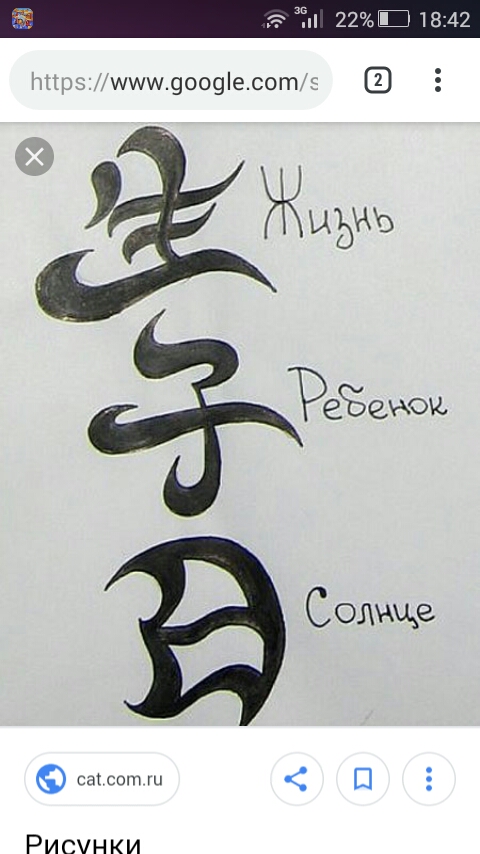 3G 22% 18:42
https://www.google.com/s
2
生 Жизнь
子 Ребенок
日 Солнце
cat.com.ru
Рисунки